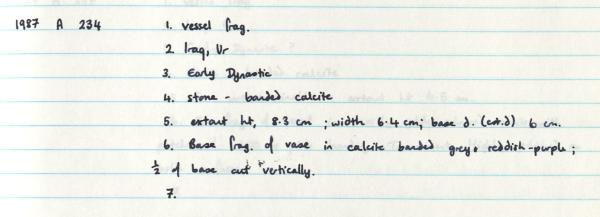 1987 A 234 1. vessel frag.
2 Iraq, Ur
3. Early Dynastic
4. stone - banded calcite
5. extant ht, 8.3 cm ; width 6.4 cm; base d. (est.d) 6 cm.
6. Base frag. of vase in calcite banded grey & reddish-purple ;
1/2 of base cut vertically.
7.